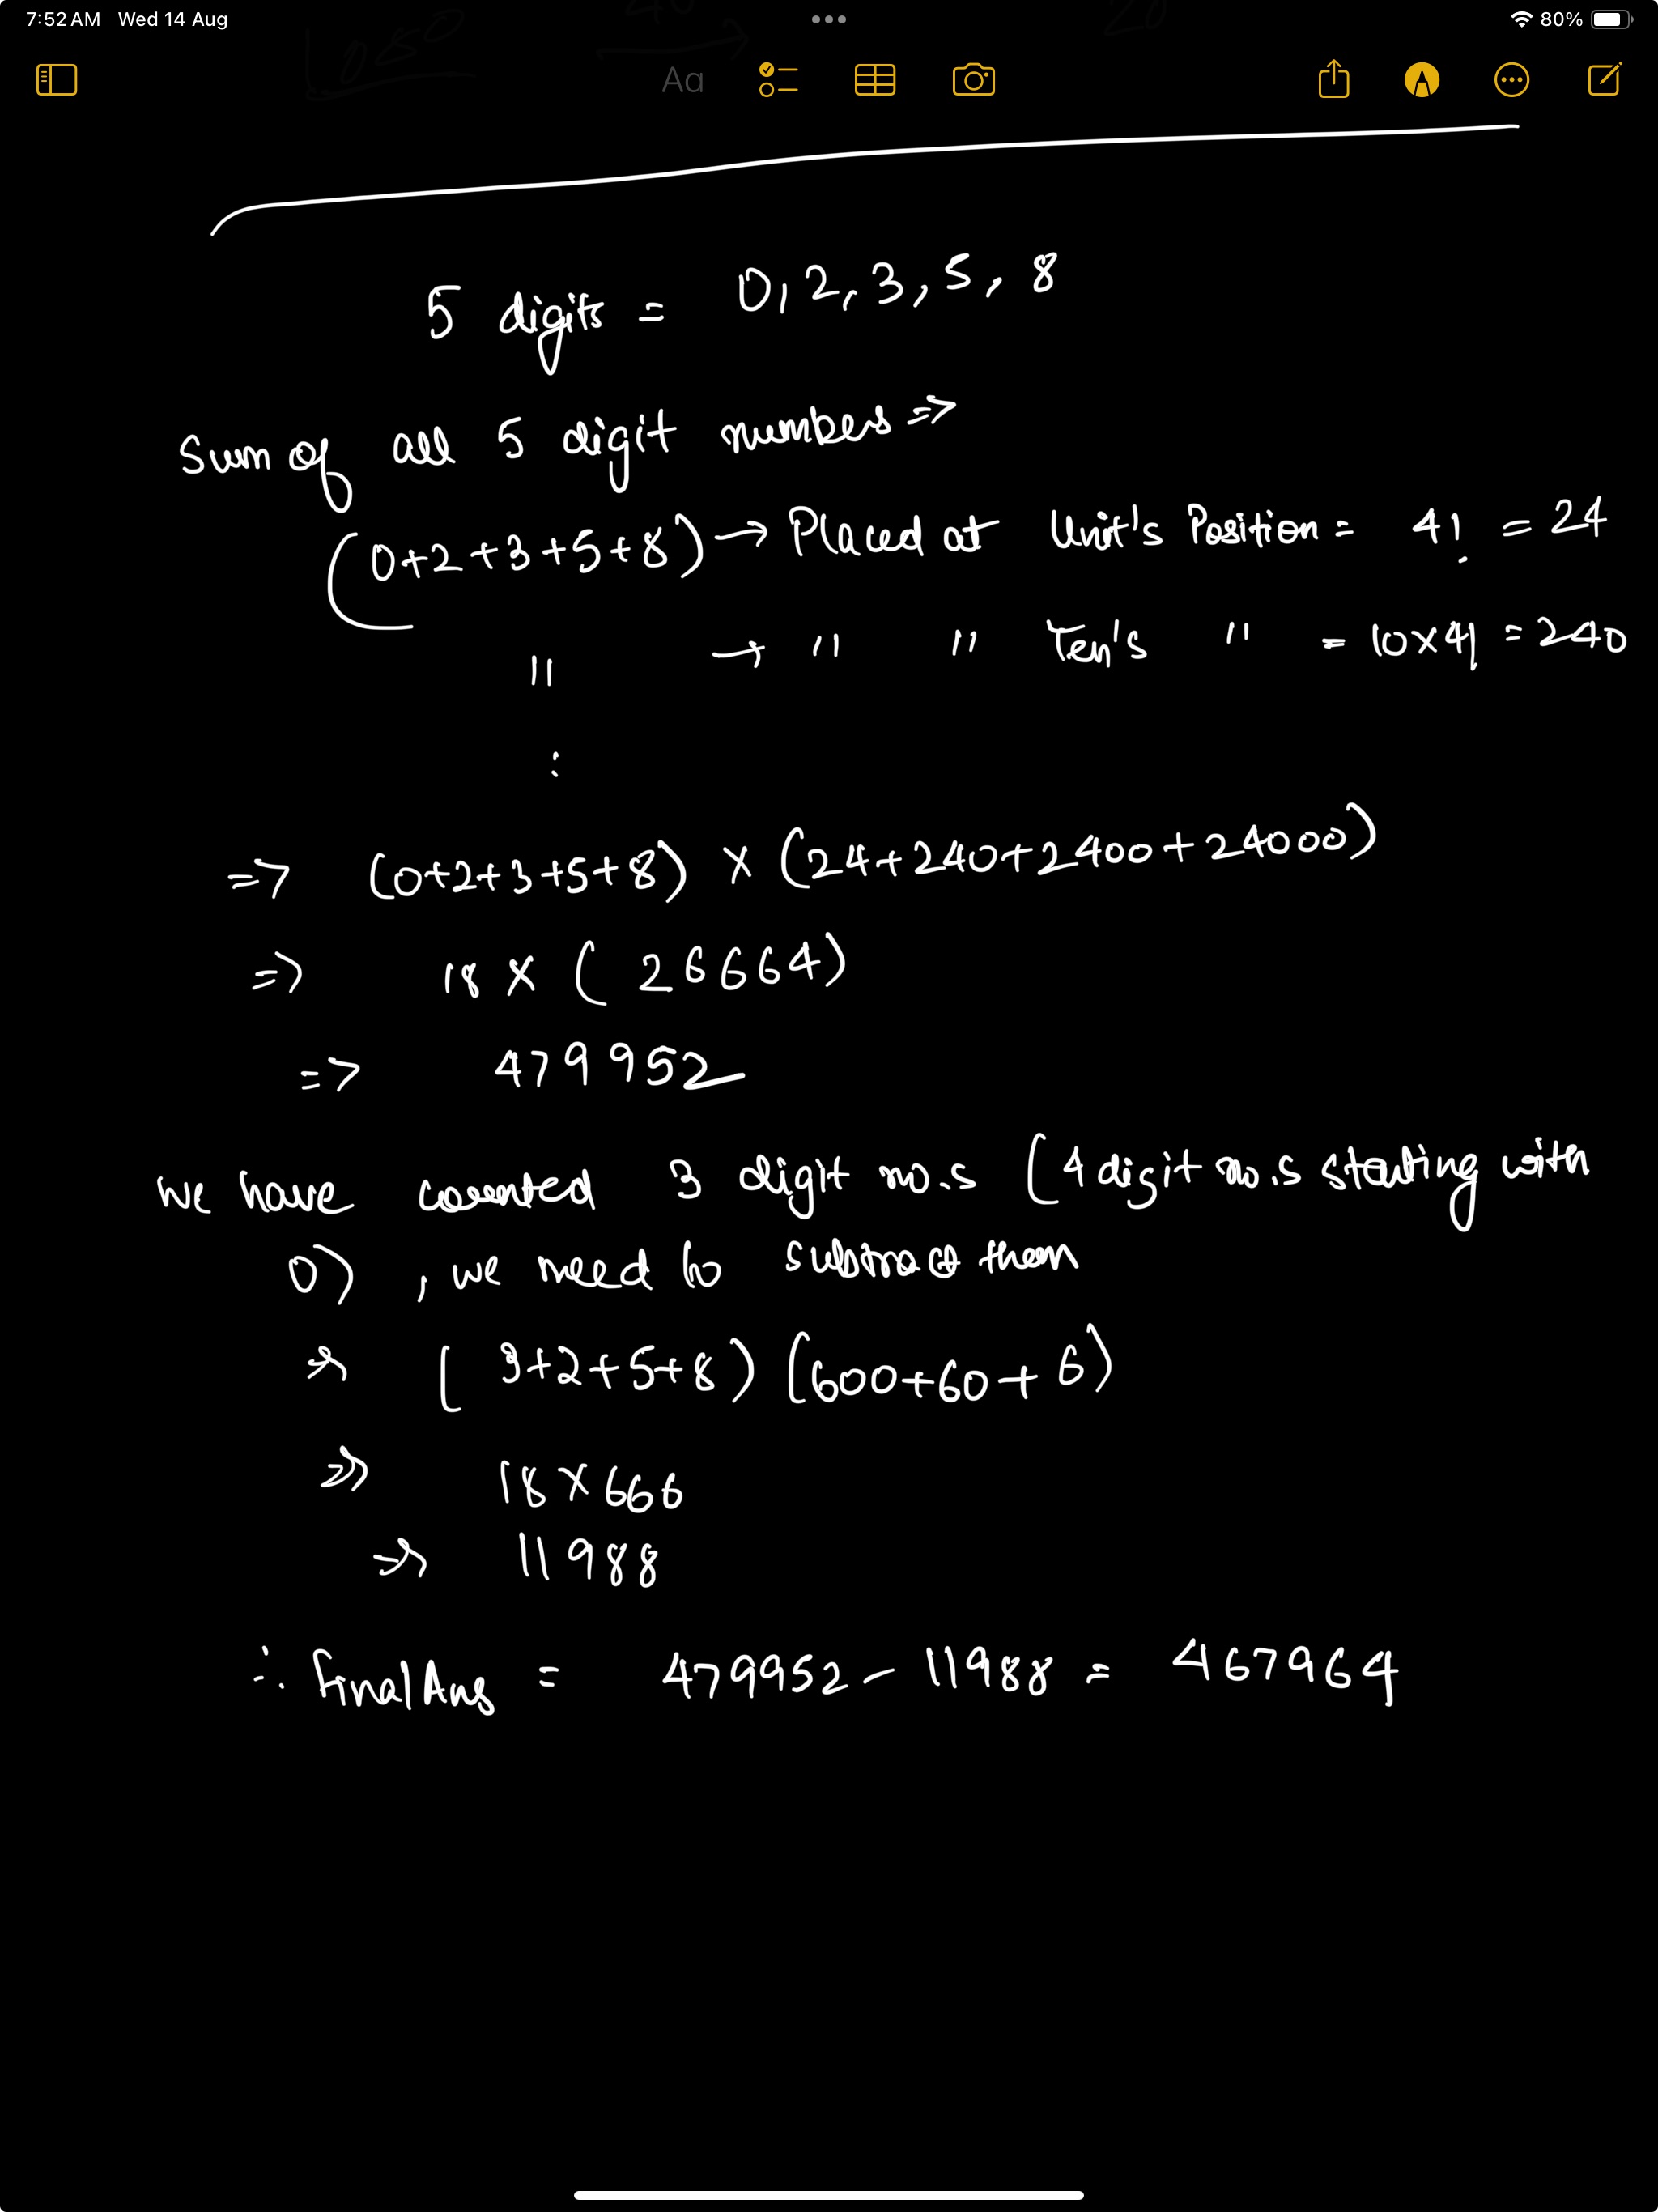 7:52 AM Wed 14 Aug
80%
Aa
5 digits = 0, 2, 3, 5, 8
Sum of all 5 digit numbers =>
(0+2+3+5+8) → Placed at Unit's Position = 4! = 24
" → " " Ten's " = 10×4! = 240
:
=> (0+2+3+5+8) × (24+240+2400+24000)
=> 18 × (26664)
=> 479952
we have counted 3 digit no.s (4 digit no.s starting with
0), we need to subtract them
=> (3+2+5+8) (600+60+6)
=> 18×666
=> 11988
∴ Final Ans = 479952 - 11988 = 467964